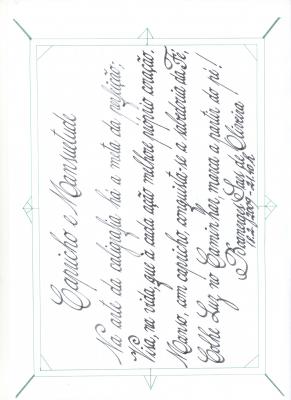 Capricho e Mansuetude
Na arte da caligrafia há a meta da perfeição;
Visa, na vida, que a cada ação melhore próprio coração.
Manso, com capricho, conquista-se a sabedoria da Fé,
Colhe Luz no Caminhar, marca a partir do pé!
Rosangela Luis de Oliveira